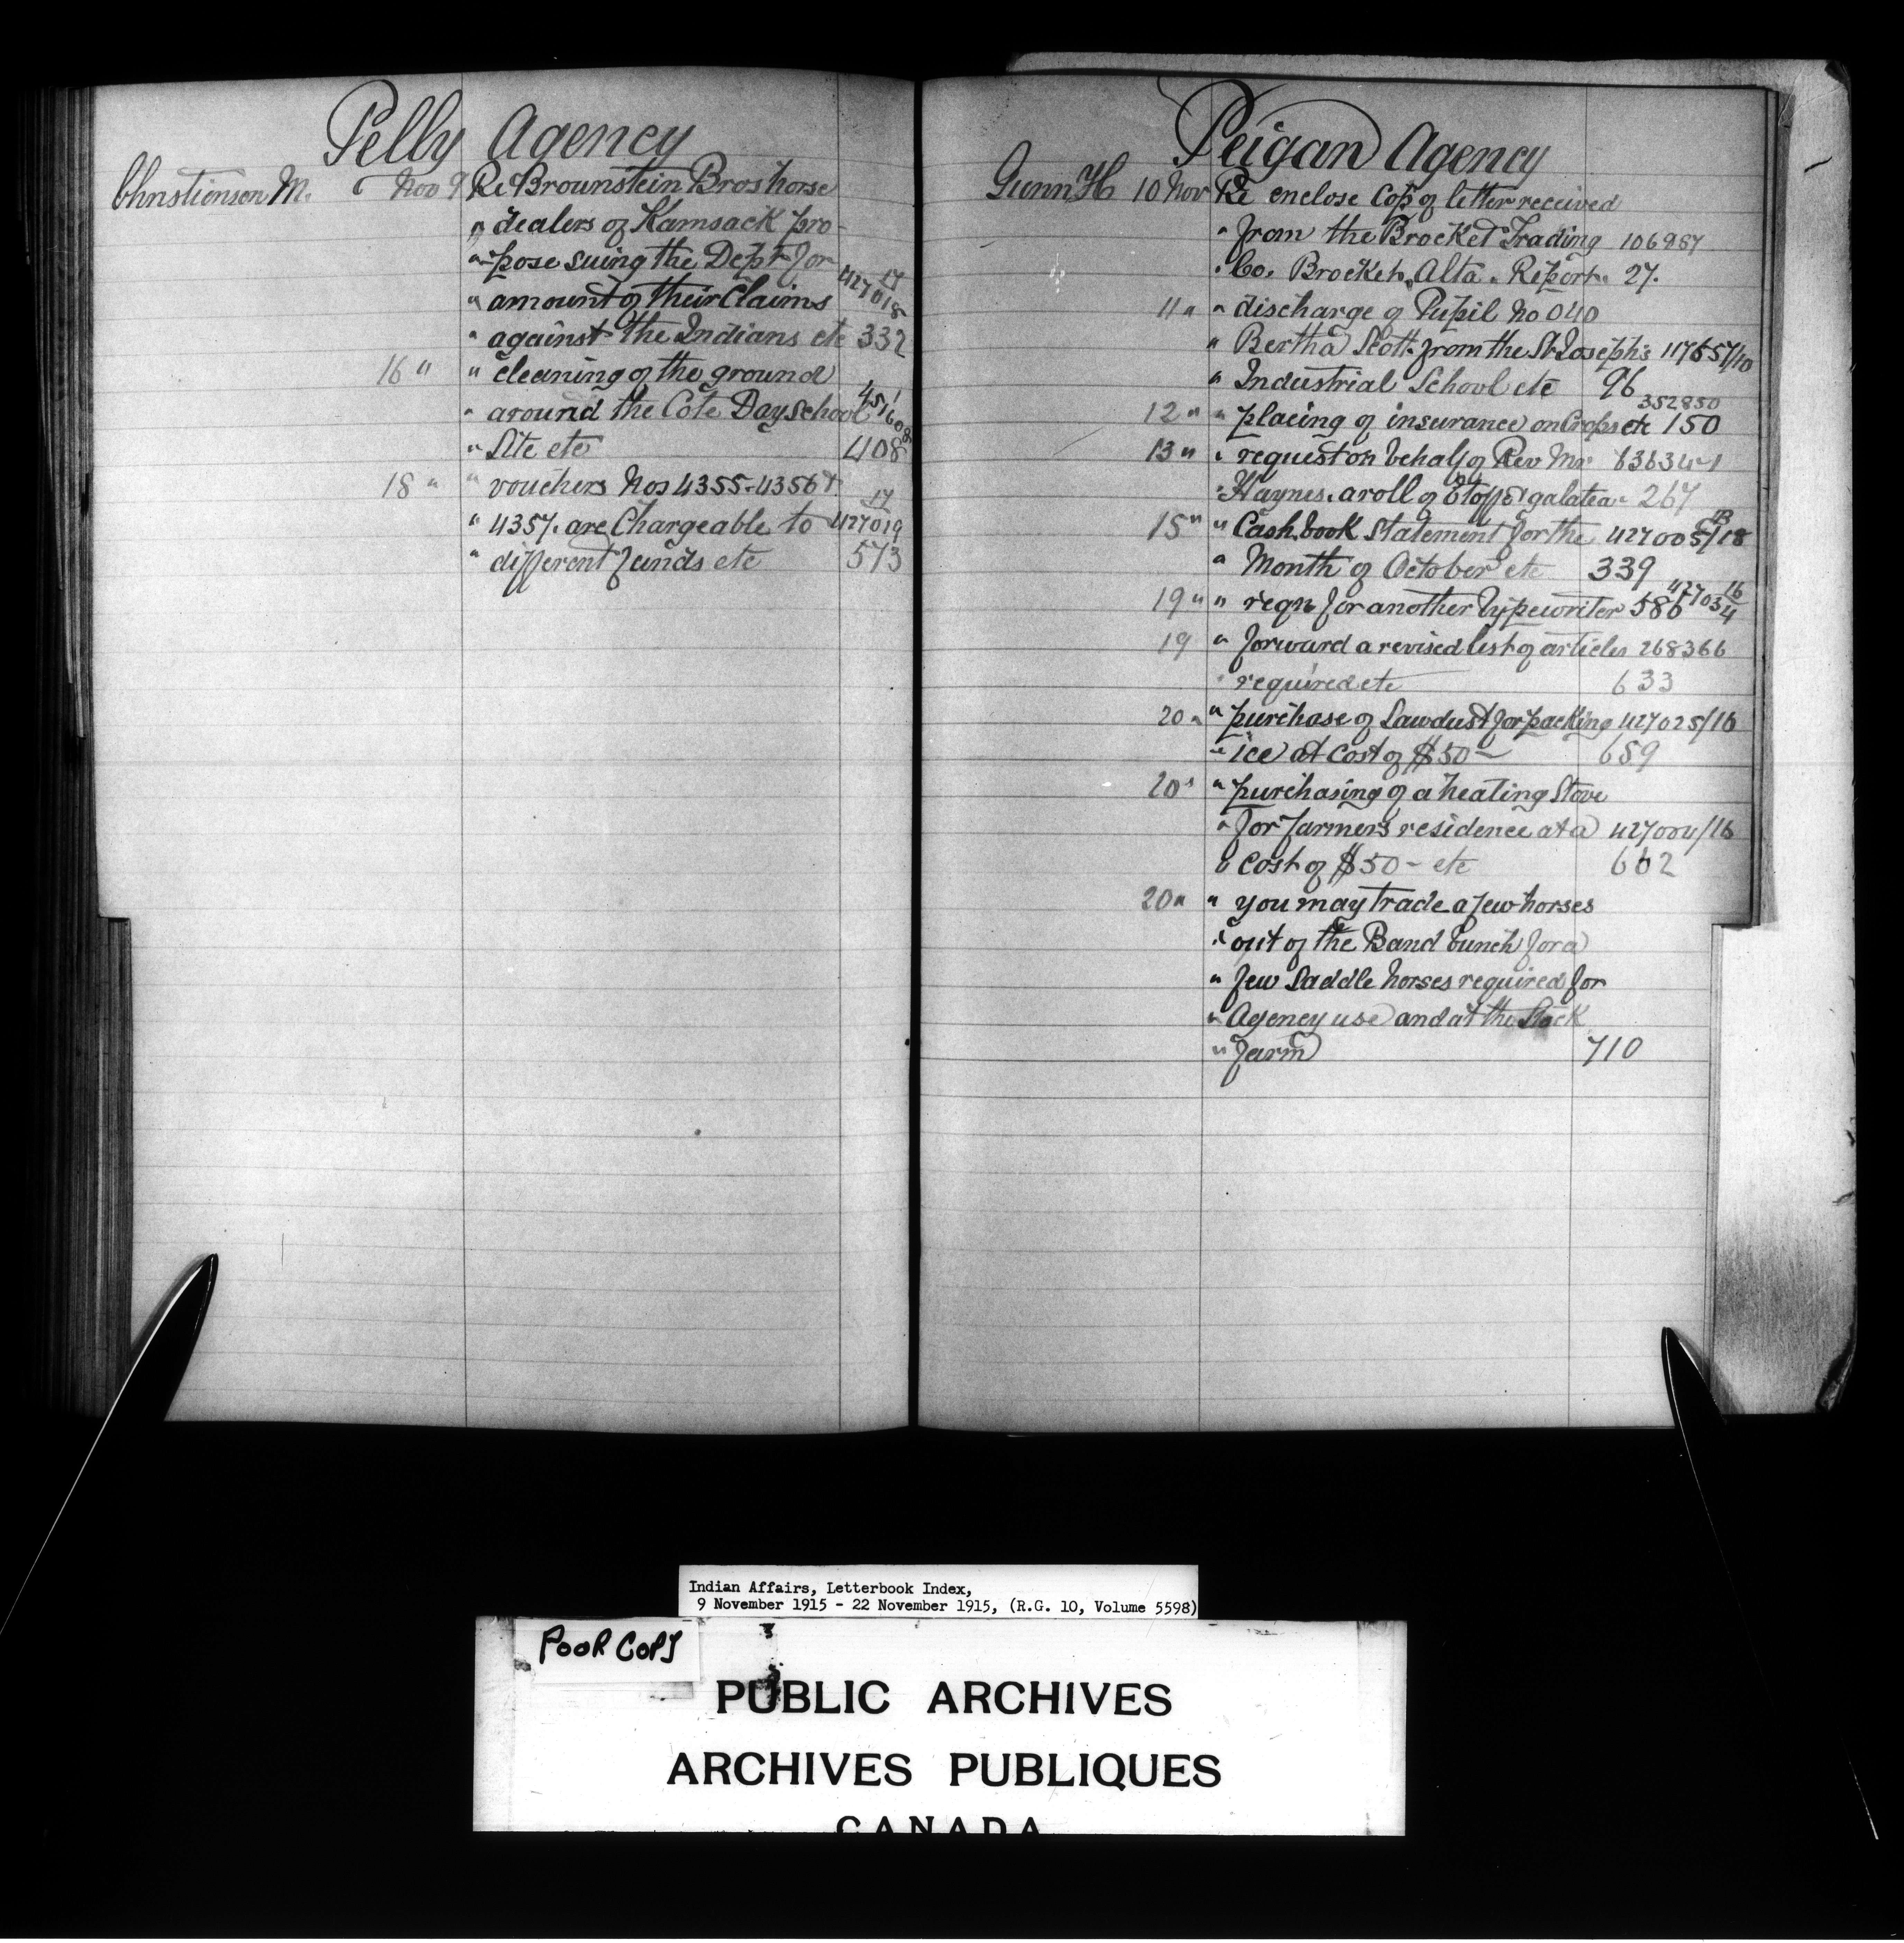 Pelly Agency
Christienson M. Nov 9 Re Brounstein Bros horse
" dealers of Kamsack pro-
" pose suing the Dept for
" amount of their Claims 427018 17
" against the Indians etc 332
16 " " cleaning of the ground
" around the Cote Day School 451608
" Site etc 408
18 " " vouchers Nos 4355-4356 &
" 4357. are Chargeable to 427019 17
" different funds etc 573
Peigan Agency
Gunn H 10 Nov Re enclose Cop of letter received
" from the Brocket Trading 106987
" Co. Brocket, Alta. Report. 27.
11 " " discharge of Pupil No 040
" Bertha Scott from the St. Joseph's 117657/10
" Industrial School etc 96
12 " " placing of insurance on Crops etc 352850 150
13 " " request on behalf of Rev Mr 63634-1
" Haynes. a roll of galatea 267
15 " " Cash book Statement for the 427005/18
" Month of October etc 339
19 " " reqn for another typewriter 586 427034 16
19 " forward a revised list of articles 268366
" required etc 633
20 " " purchase of Sawdust for packing 427025/16
" ice at cost of $50- 659
20 " " purchasing of a heating Stove
" for farmers residence at a 427004/16
" Cost of $50- etc 662
20 " " you may trade a few horses
" out of the Band bunch for a
" few Saddle horses required for
" Agency use and at the Stock
" farm 710
Indian Affairs, Letterbook Index,
9 November 1915 - 22 November 1915, (R.G. 10, Volume 5598)
POOR COPY
PUBLIC ARCHIVES
ARCHIVES PUBLIQUES
CANADA